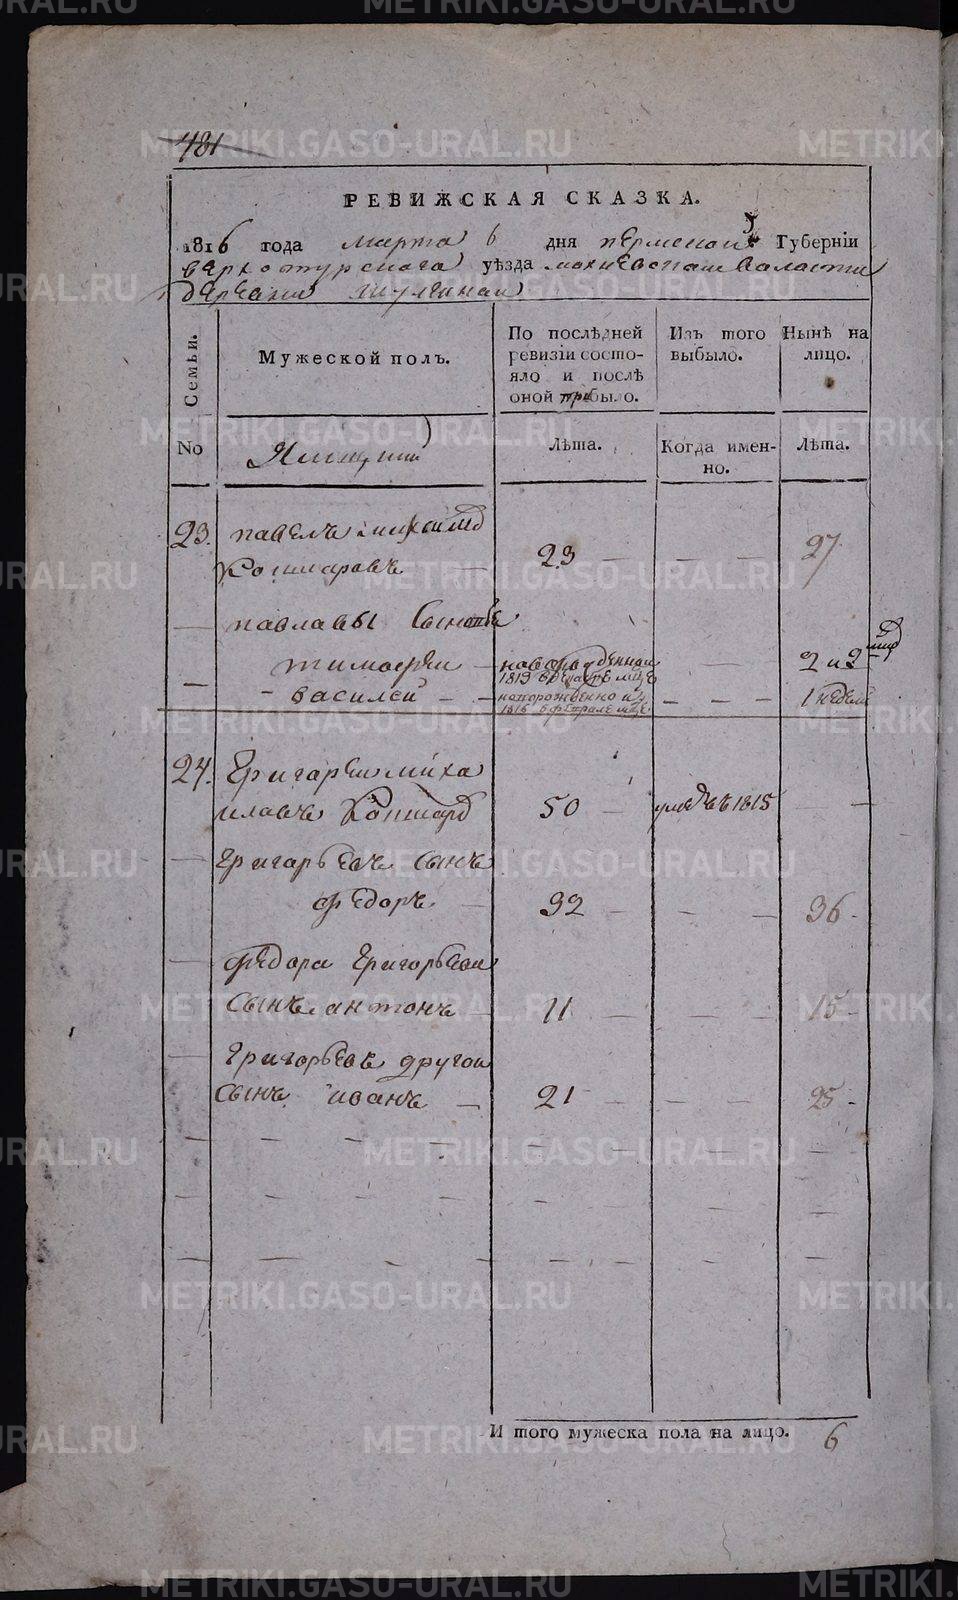 481
РЕВИЖСКАЯ СКАЗКА.
1816 года марта 6 дня пермской Губерніи
верхотурскага уѣзда махневской валасти
деревни
Семьи.
Мужеской полъ.
По послѣдней ревизіи состояло и послѣ оной прибыло.
Изъ того выбыло.
Нынѣ на лицо.
No
Ямщики
Лѣта.
Когда именно.
Лѣта.
23. павелъ михаилов
Кошкаровъ 23 27
павлавы Сыновье
тимофеи новорожденнои 2 и 2 мцо
1813 в мцѣ
василей новорожденнои 1 недели
1816 в феврале мцѣ
24. Григореи миха
иловъ Кошкар 50 умре въ 1815
Григорьевъ сынъ
федоръ 32 36
федора Григорьева
сынъ антонъ 11 15
Григорьевъ другои
сынъ иванъ 21 25
И того мужеска пола на лицо. 6
METRIKI.GASO-URAL.RU